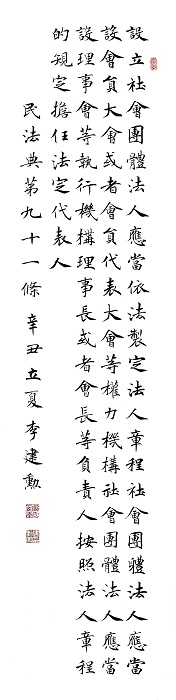 設立社會團體法人應當依法製定法人章程社會團體法人應當
設會員大會或者會員代表大會等權力機構社會團體法人應當
設理事會等執行機構理事長或者會長等負責人按照法人章程
的規定擔任法定代表人
民法典第九十一條 辛丑立夏李建勲